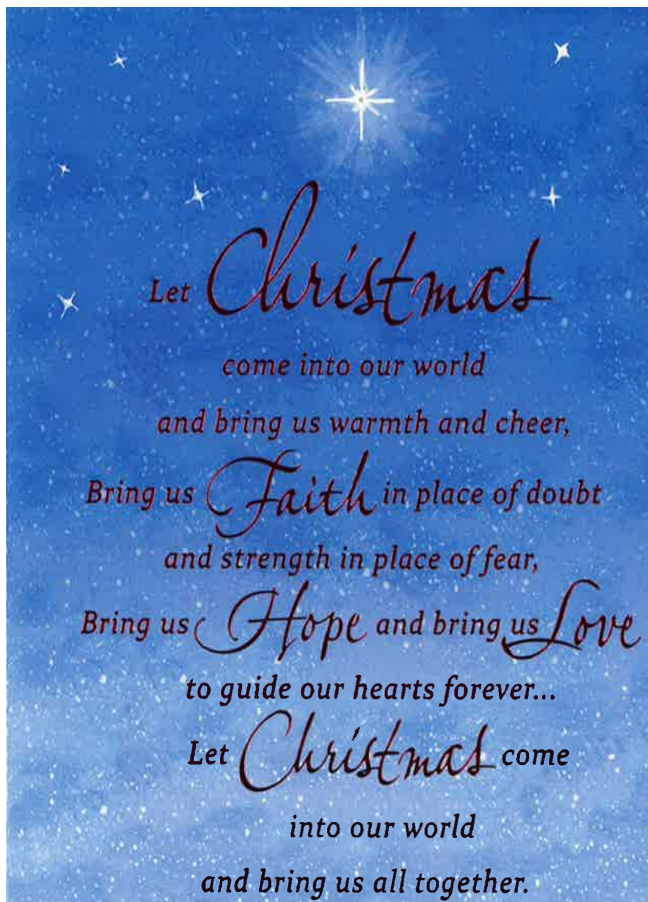 Let Christmas
come into our world
and bring us warmth and cheer,
Bring us Faith in place of doubt
and strength in place of fear,
Bring us Hope and bring us Love
to guide our hearts forever...
Let Christmas come
into our world
and bring us all together.